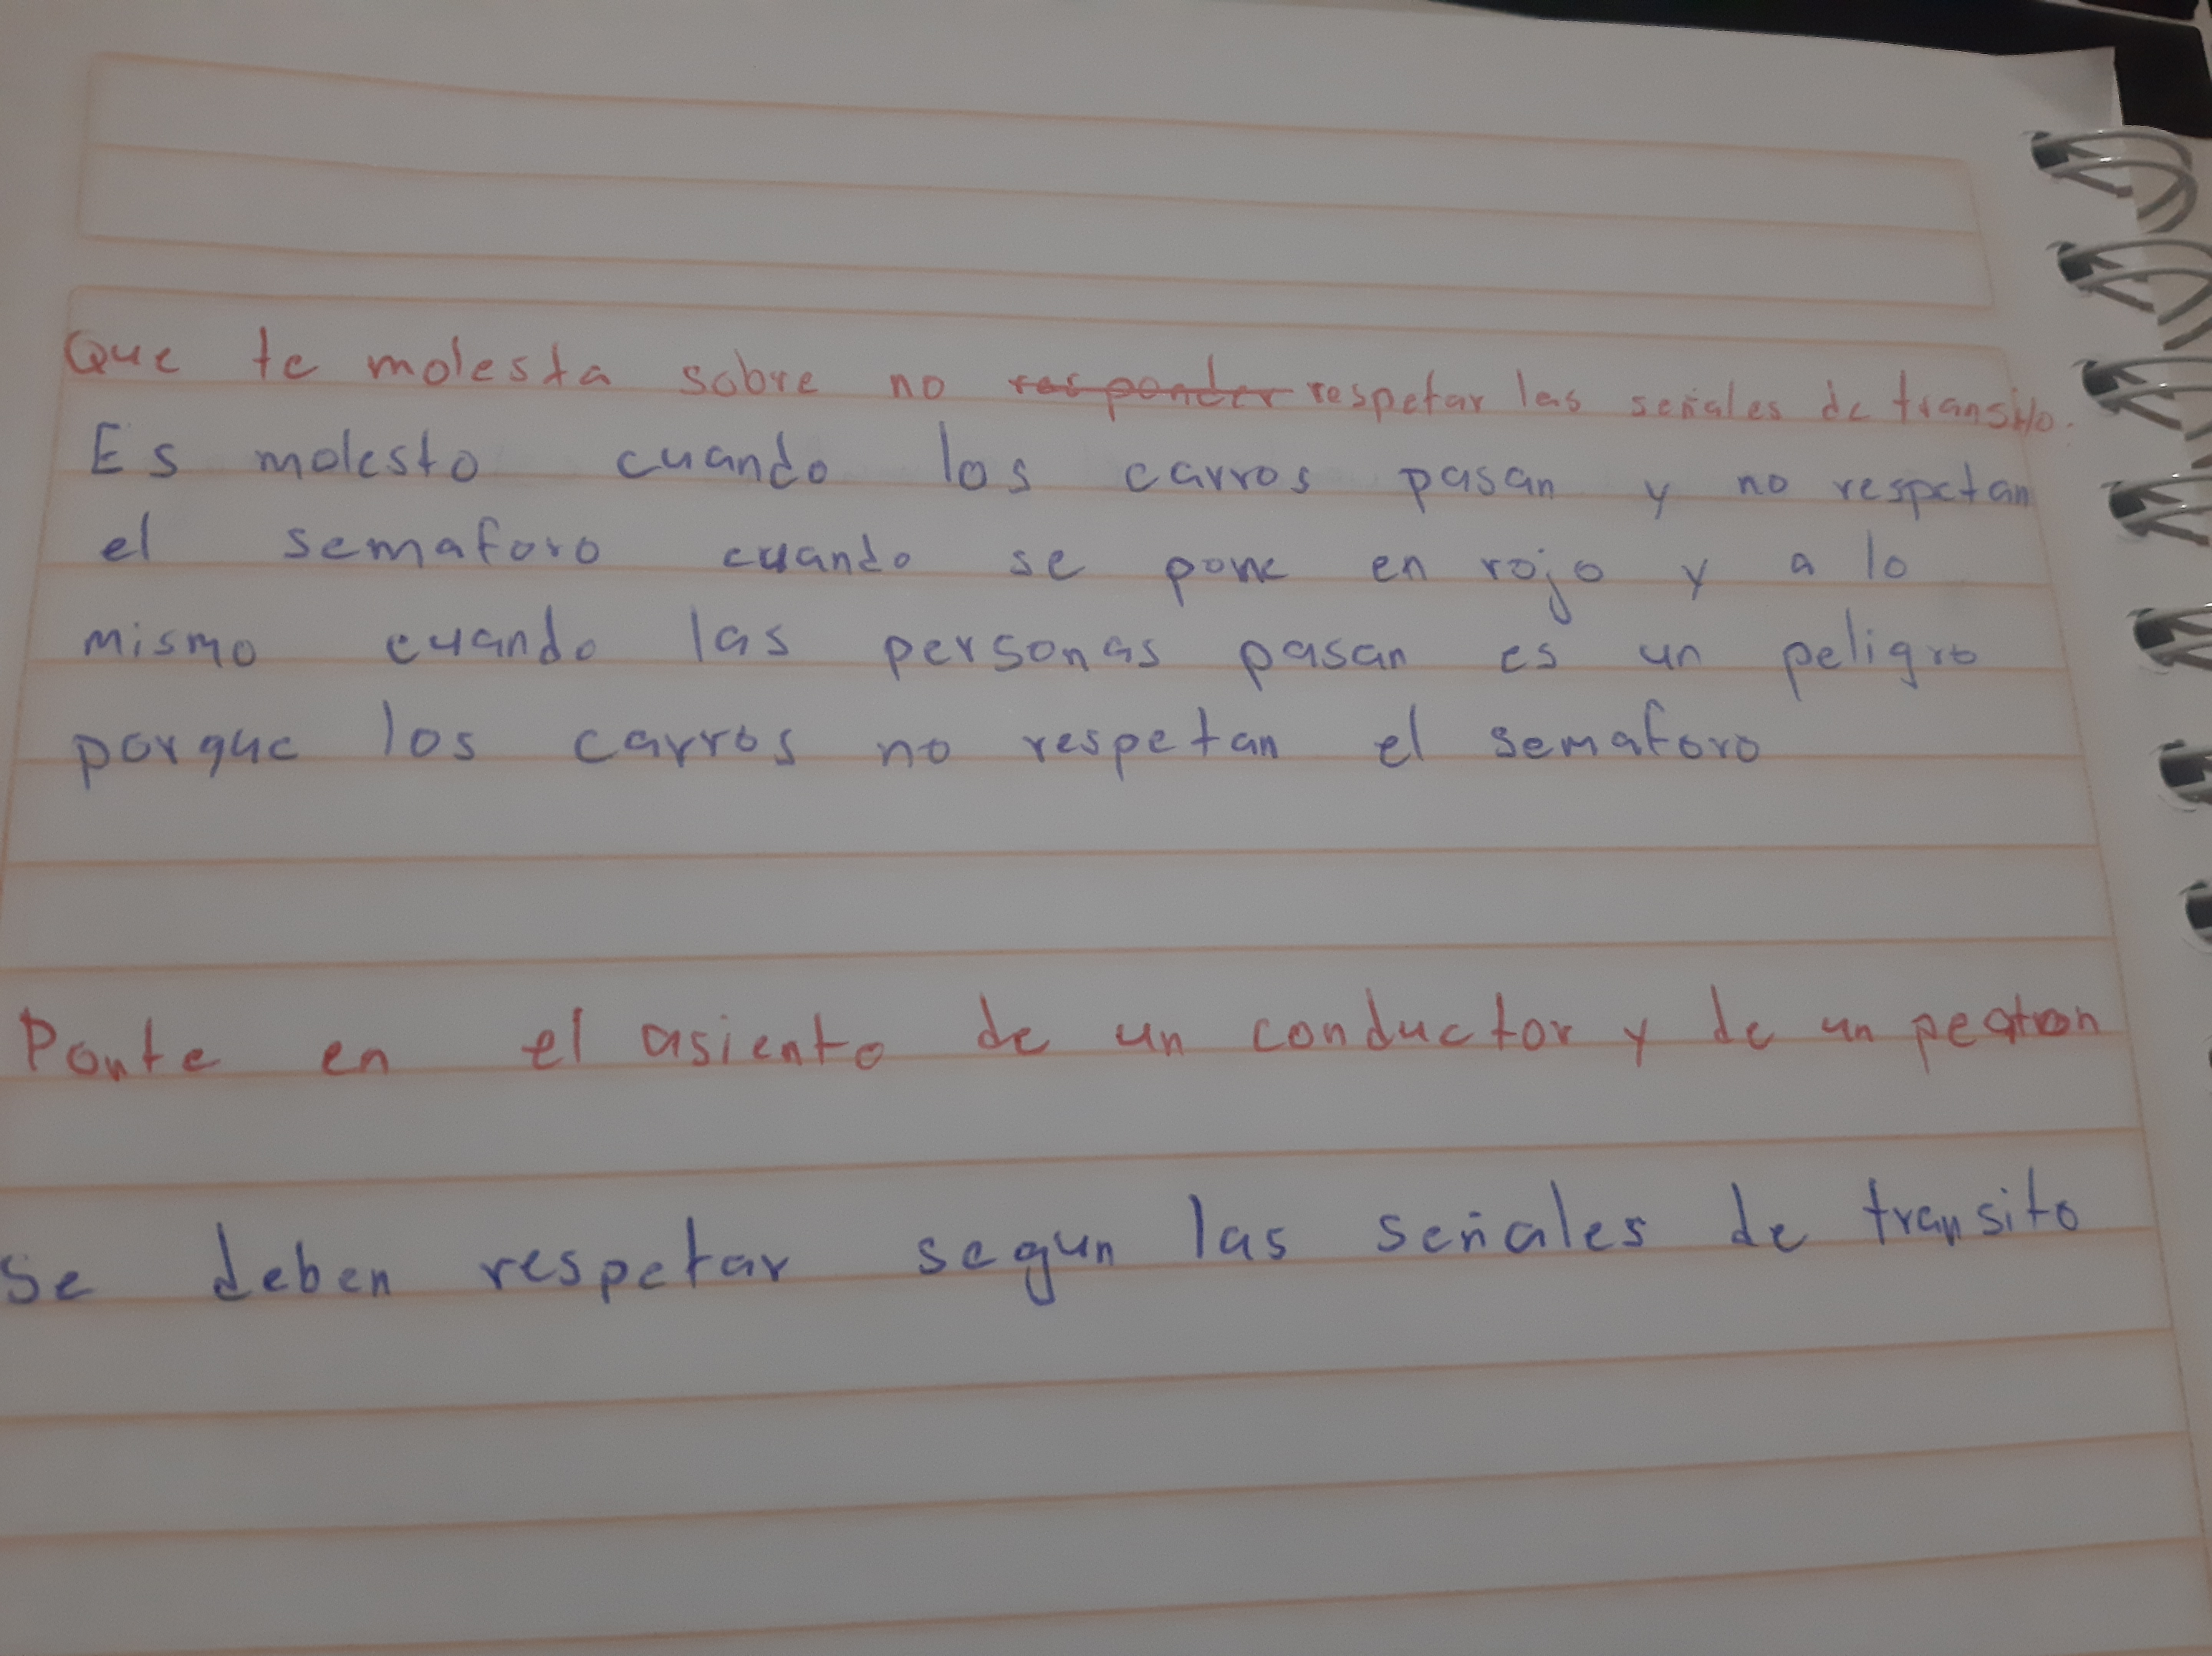 Que te molesta sobre no responder respetar las señales de transito.
Es molesto cuando los carros pasan y no respetan
el semaforo cuando se pone en rojo y a lo
mismo cuando las personas pasan es un peligro
porque los carros no respetan el semaforo
Ponte en el asiento de un conductor y de un peaton
se deben respetar segun las señales de transito